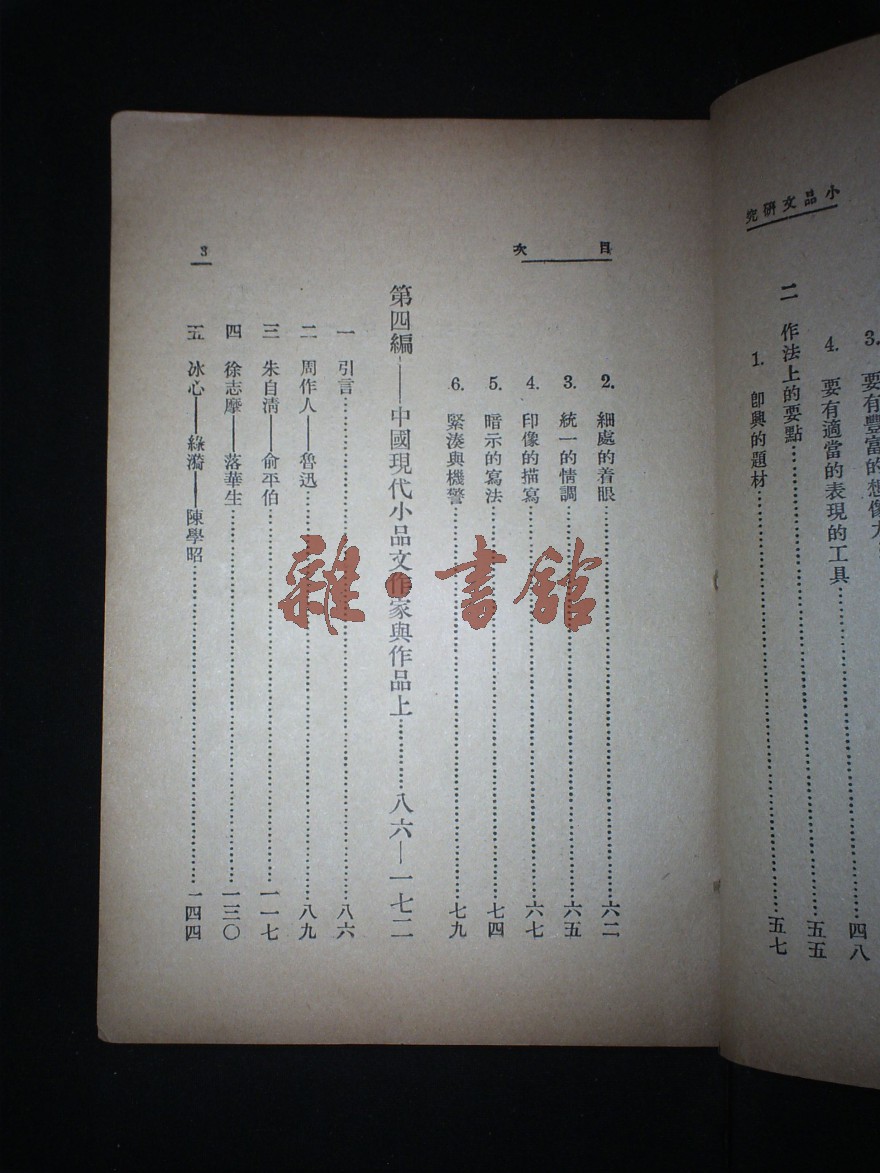 小品文研究
3. 要有豐富的想像力
4. 要有適當的表現的工具……五五
二 作法上的要點……五五
1. 卽興的題材……五七
目次
2. 細處的着眼……六二
3. 統一的情調……六五
4. 印像的描寫……六七
5. 暗示的寫法……七四
6. 緊湊與機警……七九
第四編——中國現代小品文作家與作品上……八六—一七二
一 引言……八六
二 周作人——魯迅……八九
三 朱自清——俞平伯……一一七
四 徐志摩——落華生……一三〇
五 冰心——綠漪——陳學昭……一四四
3
雜·書館